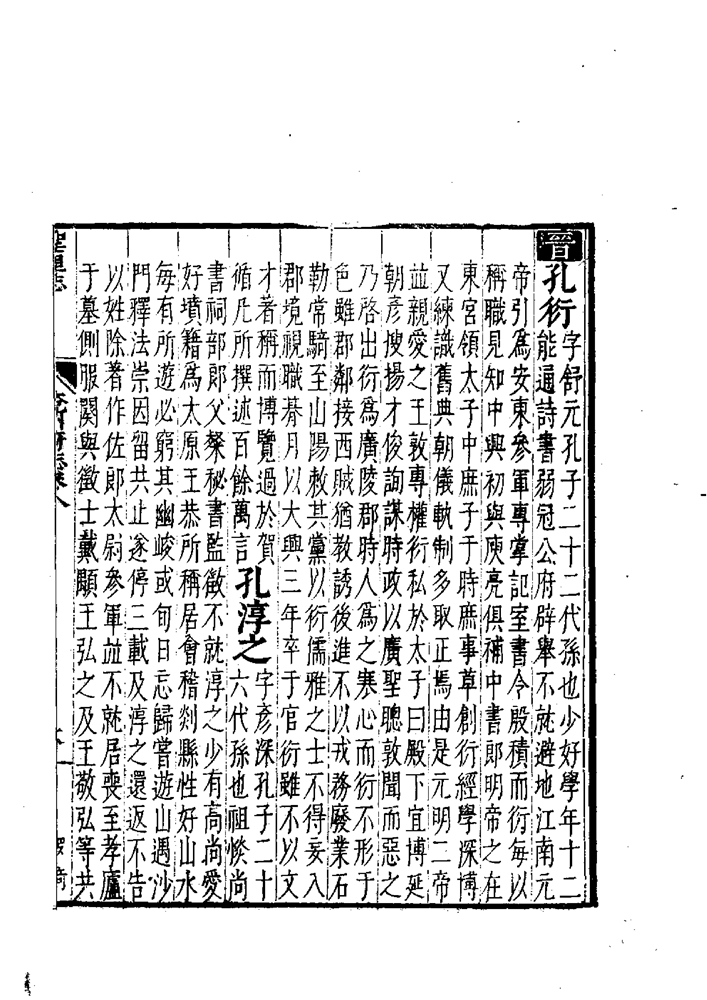 晉孔衍字舒元孔子二十二代孫也少好學年十二
能通詩書弱冠公府辟舉不就避地江南元
帝引爲安東參軍專掌記室書令殷積而衍每以
稱職見知中興初與庾亮俱補中書郎明帝之在
東宮領太子中庶子于時庶事草創衍經學深博
又練識舊典朝儀軌制多取正焉由是元明二帝
並親愛之王敦專權衍私於太子曰殿下宜博延
朝彥搜揚才俊詢謀時政以廣聖聰敦聞而惡之
乃啓出衍爲廣陵郡時人爲之寒心而衍不形于
色雖郡鄰接西賊猶教誘後進不以戎務廢業石
勒常騎至山陽敕其黨以衍儒雅之士不得妄入
郡境視職朞月以大興三年卒于官衍雖不以文
才著稱而博覽過於賀
循凡所撰述百餘萬言孔淳之字彥深孔子二十
六代孫也祖惔尚
書祠部郎父粲秘書監徵不就淳之少有高尚愛
好墳籍爲太原王恭所稱居會稽剡縣性好山水
每有所遊必窮其幽峻或旬日忘歸嘗遊山遇沙
門釋法崇因留共止遂停三載及淳之還返不告
以姓除著作佐郎太尉參軍並不就居喪至孝廬
于墓側服闋與徵士戴顒王弘之及王敬弘等共